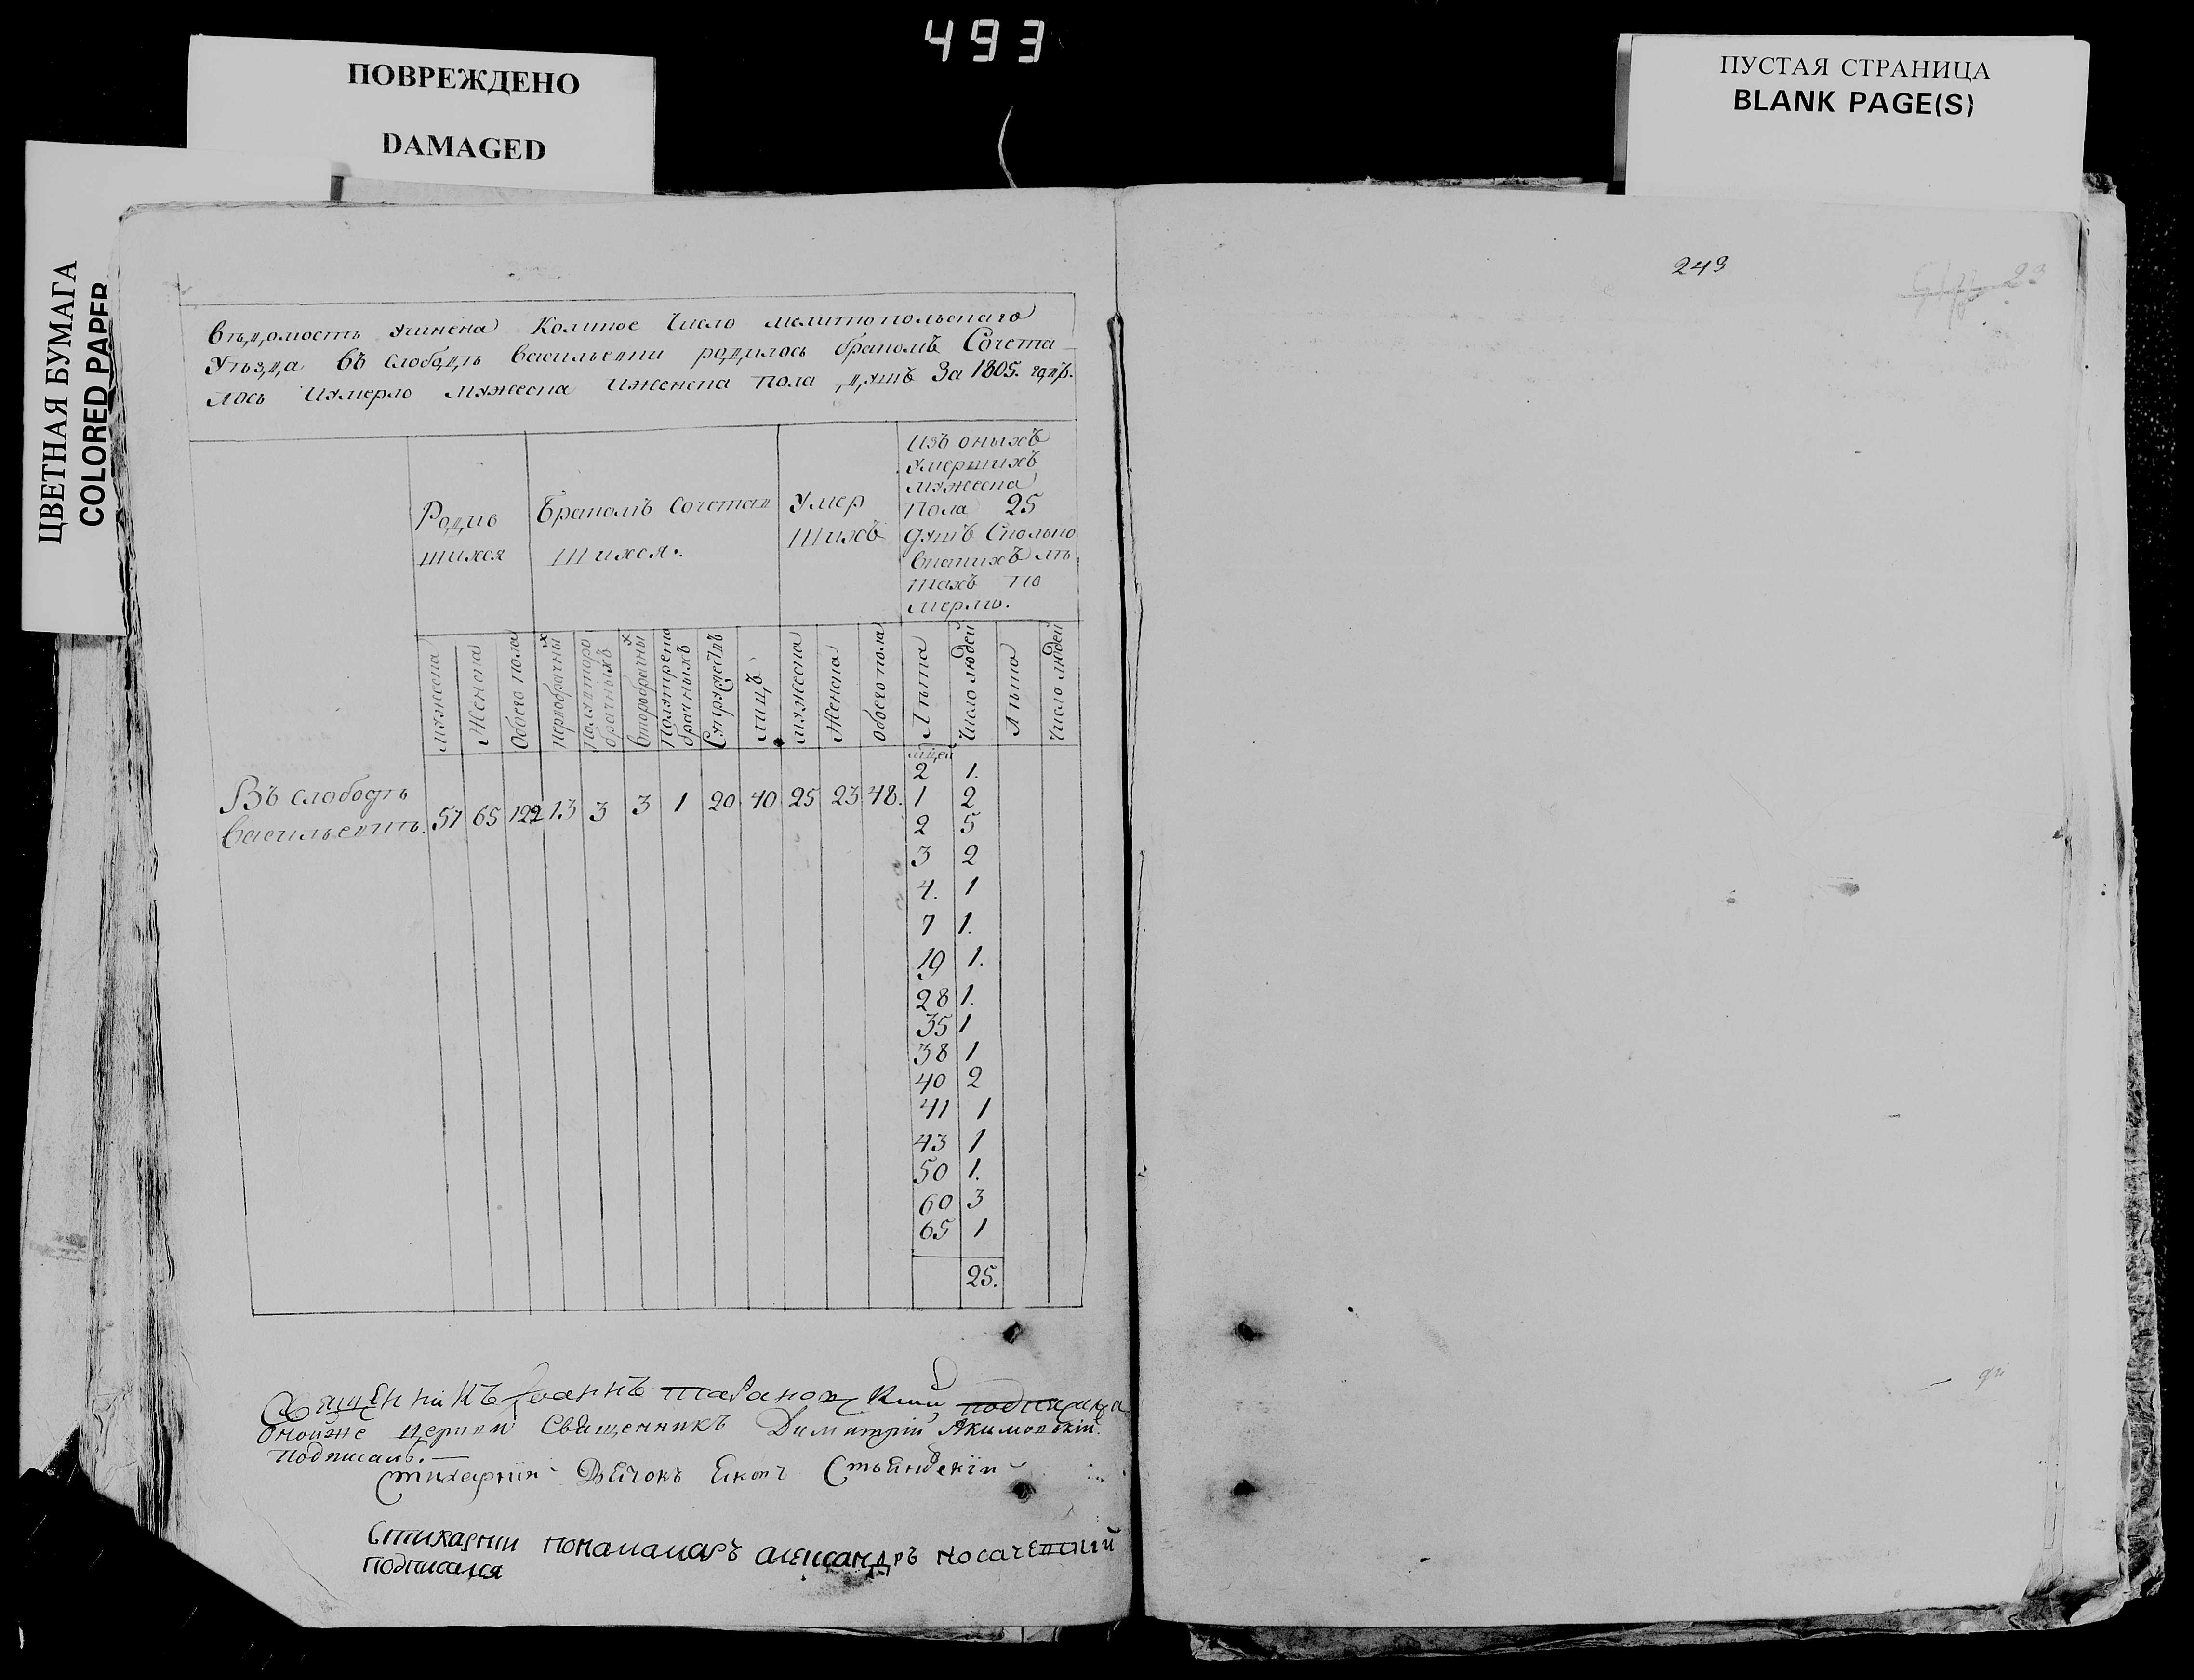 493
ПОВРЕЖДЕНО
DAMAGED
ПУСТАЯ СТРАНИЦА
BLANK PAGE(S)
ЦВЕТНАЯ БУМАГА
COLORED PAPER
249
23
Вѣдомость учинена Коликое Число мелитопольскаго
Уѣзда въ слободѣ васильевки родилось бракомъ Сочета
лось иумерло мужеска иженска пола душъ За 1805. годъ.
Родив
шихся
Бракомъ Сочетав
шихся.
Умер
шихъ
изъ оныхъ
умершихъ
мужеска
пола 25
душъ Сколько
вкакихъ лѣ
тахъ по
мерло.
мужеска
Женска
Обоего пола
Первобрачных
Полуторо
брачныхъ
Второбрачных
Полутрето
брачныхъ
Супружествъ
лицъ
мужеска
Женска
обоего пола
Лѣта
Число людей
Лѣта
Число людей
Въ слободѣ
васильевкѣ. 57 65 122 13 3 3 1 20 40 25 23 48.
мцей
2 1.
1 2
2 5
3 2
4. 1
7 1.
19 1.
28 1.
35 1
38 1
40 2
41 1
43 1
50 1.
60 3
65 1
25.
Священникъ Іоаннъ
Оной же церкви Священникъ Димитрій Якимовскій
подписалъ.
Стихарній Дьячокъ
Стихарнии понамамаръ александръ носачевский
подписался